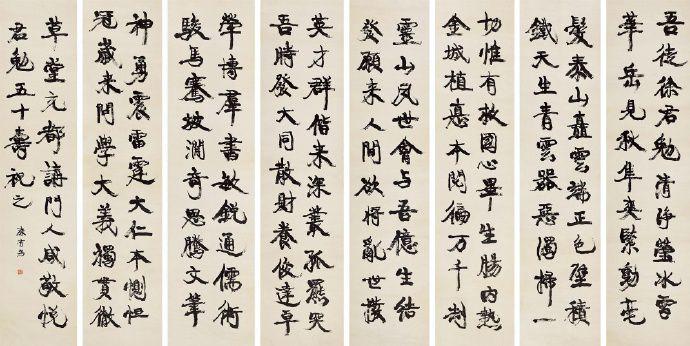 吾徒徐君勉清淨瑩冰雪
華岳見秋隼爽緊動毫
髮泰山矗雲端正色壁積
鐵天生青雲器惡濁掃一
切惟有救國心畢生腸內熱
金城植惪本閱徧万千
靈山夙世會与吾憶生結
發願来人間欲將亂世撥
英才群偕来深叢孤羆突
吾時發大同散財養俊達卓
犖博羣書敏銳通儒術
駿馬騫坡澗奇思騰文筆
神勇震雷霆大仁本惻怛
冠歲来問學大義獨貫徹
草堂充都講門人咸敬悅
君勉五十壽祝之
康有為